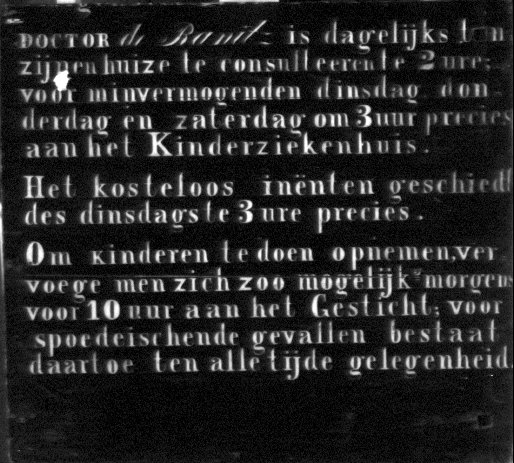 DOCTOR de Ranitz is dagelijks ten
zijnen huize te consulteeren te 2 ure;
voor minvermogenden dinsdag don-
derdag en zaterdag om 3 uur precies
aan het Kinderziekenhuis.
Het kosteloos inënten geschiedt
des dinsdags te 3 ure precies.
Om kinderen te doen opnemen, ver
voege men zich zoo mogelijk morgens
voor 10 uur aan het Gesticht; voor
spoedeischende gevallen bestaat
daartoe ten alle tijde gelegenheid.